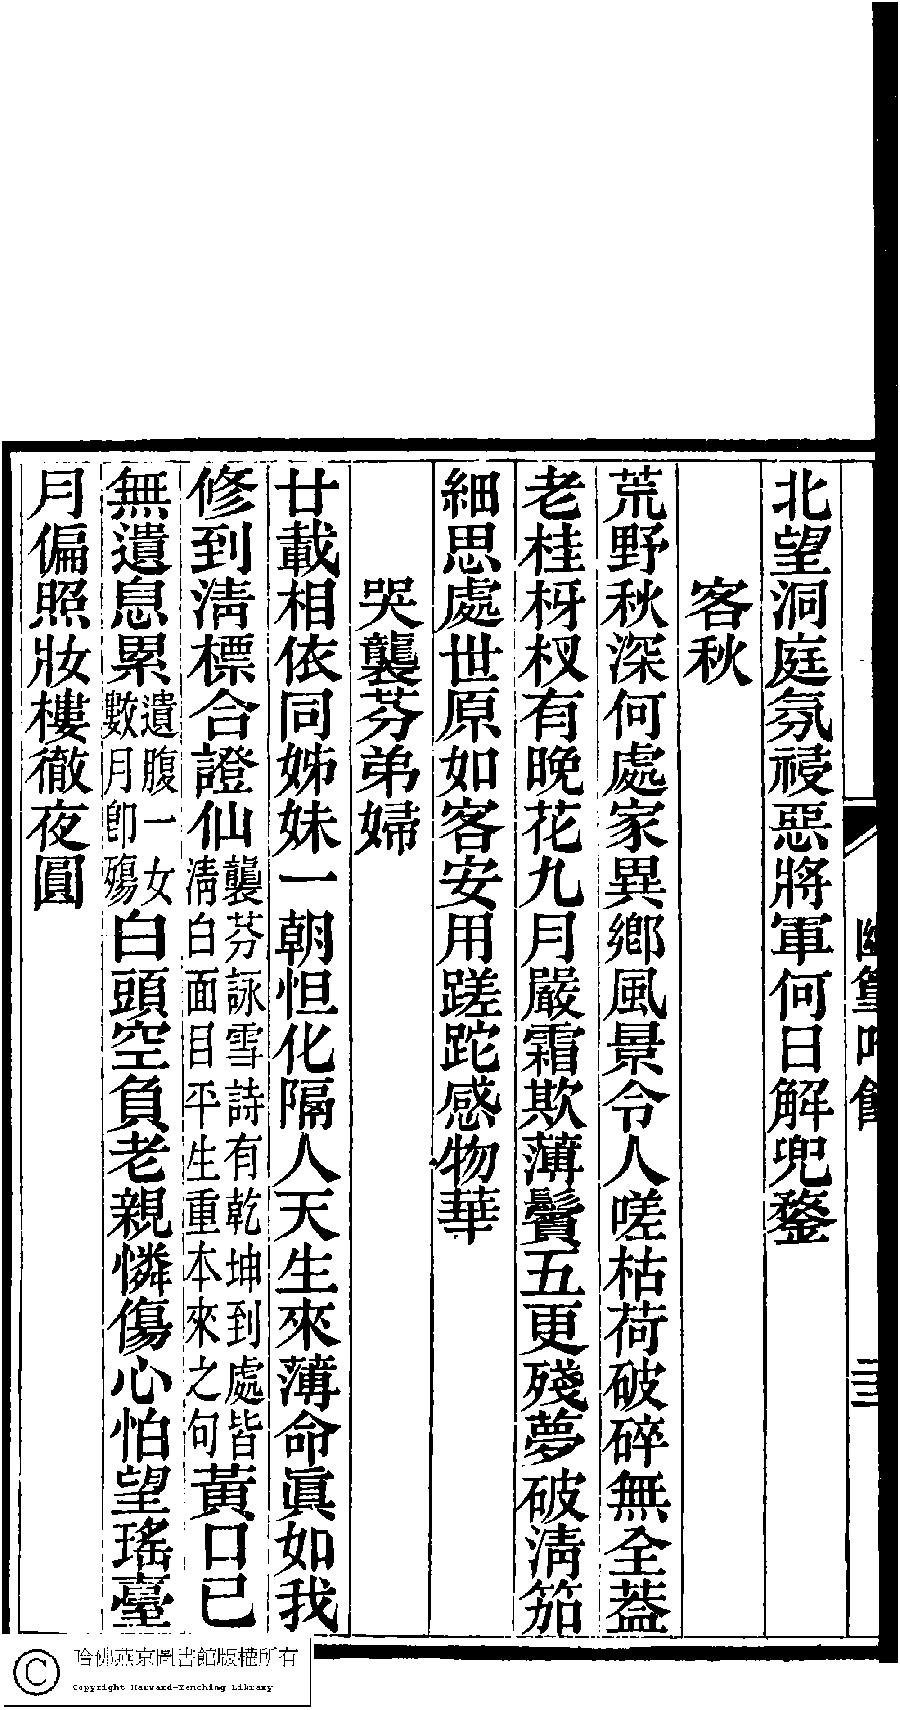 北望洞庭氛祲惡將軍何日解兜鍪
客秋
荒野秋深何處家異鄉風景令人嗟枯荷破碎無全葢
老桂枒杈有晚花九月嚴霜欺薄鬢五更殘夢破淸笳
細思處世原如客安用蹉跎感物華
哭襲芬弟婦
廿載相依同姊妹一朝怛化隔人天生來薄命眞如我
修到淸標合證仙襲芬詠雪詩有乾坤到處皆淸白面目平生重本來之句黃口已
無遺息累遺腹一女數月卽殤白頭空負老親憐傷心怕望瑤臺
月偏照妝樓徹夜圓
哈佛燕京圖書館版權所有
Copyright Harvard-Yenching Library